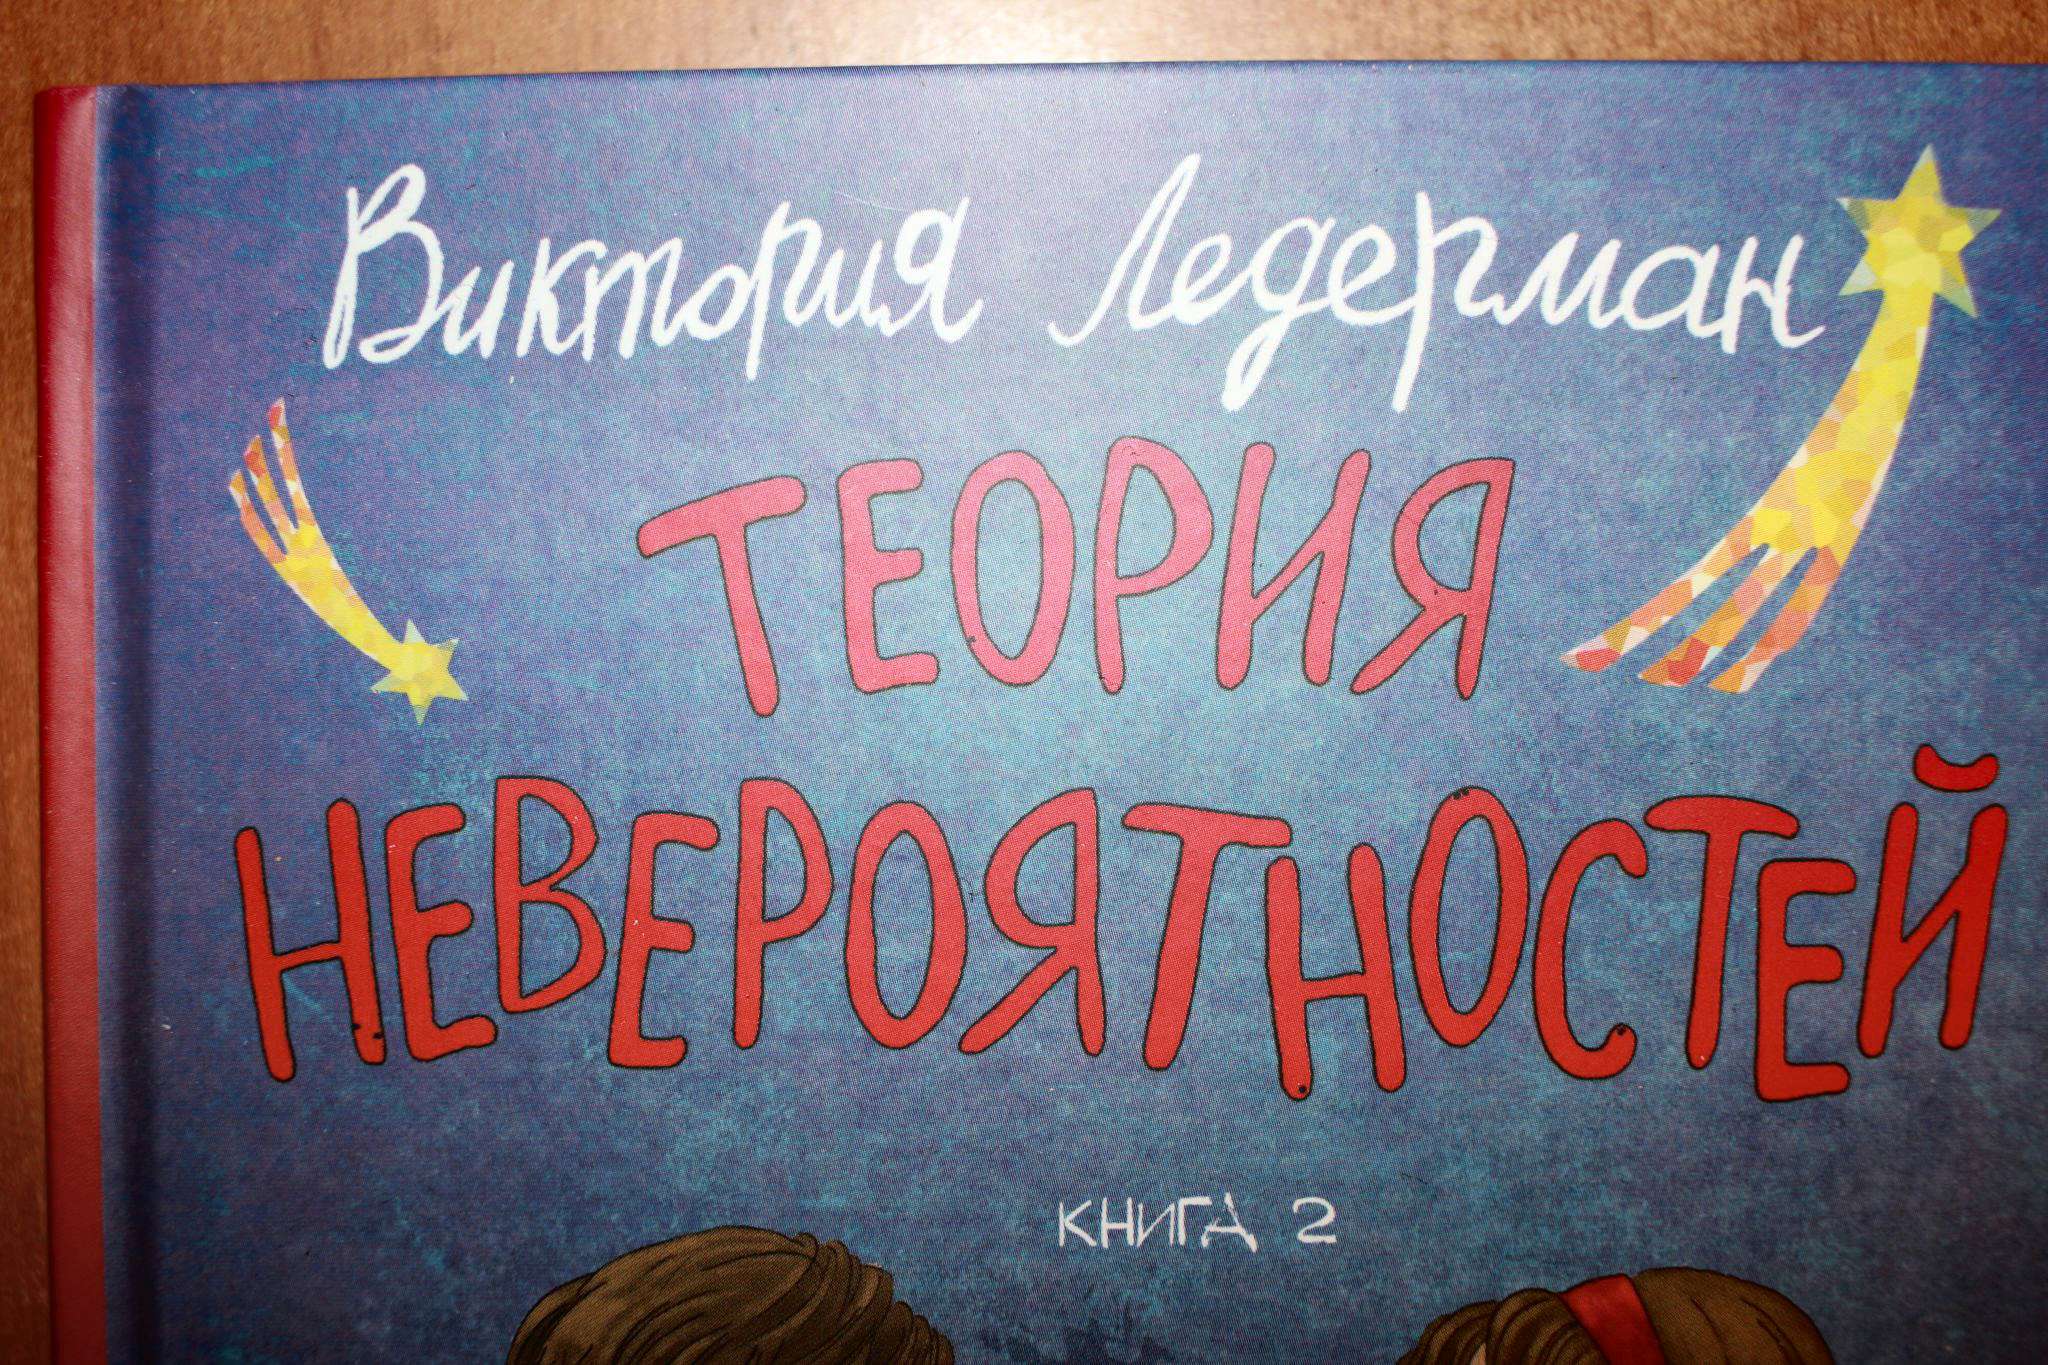 Виктория Ледерман
ТЕОРИЯ
НЕВЕРОЯТНОСТЕЙ
КНИГА 2